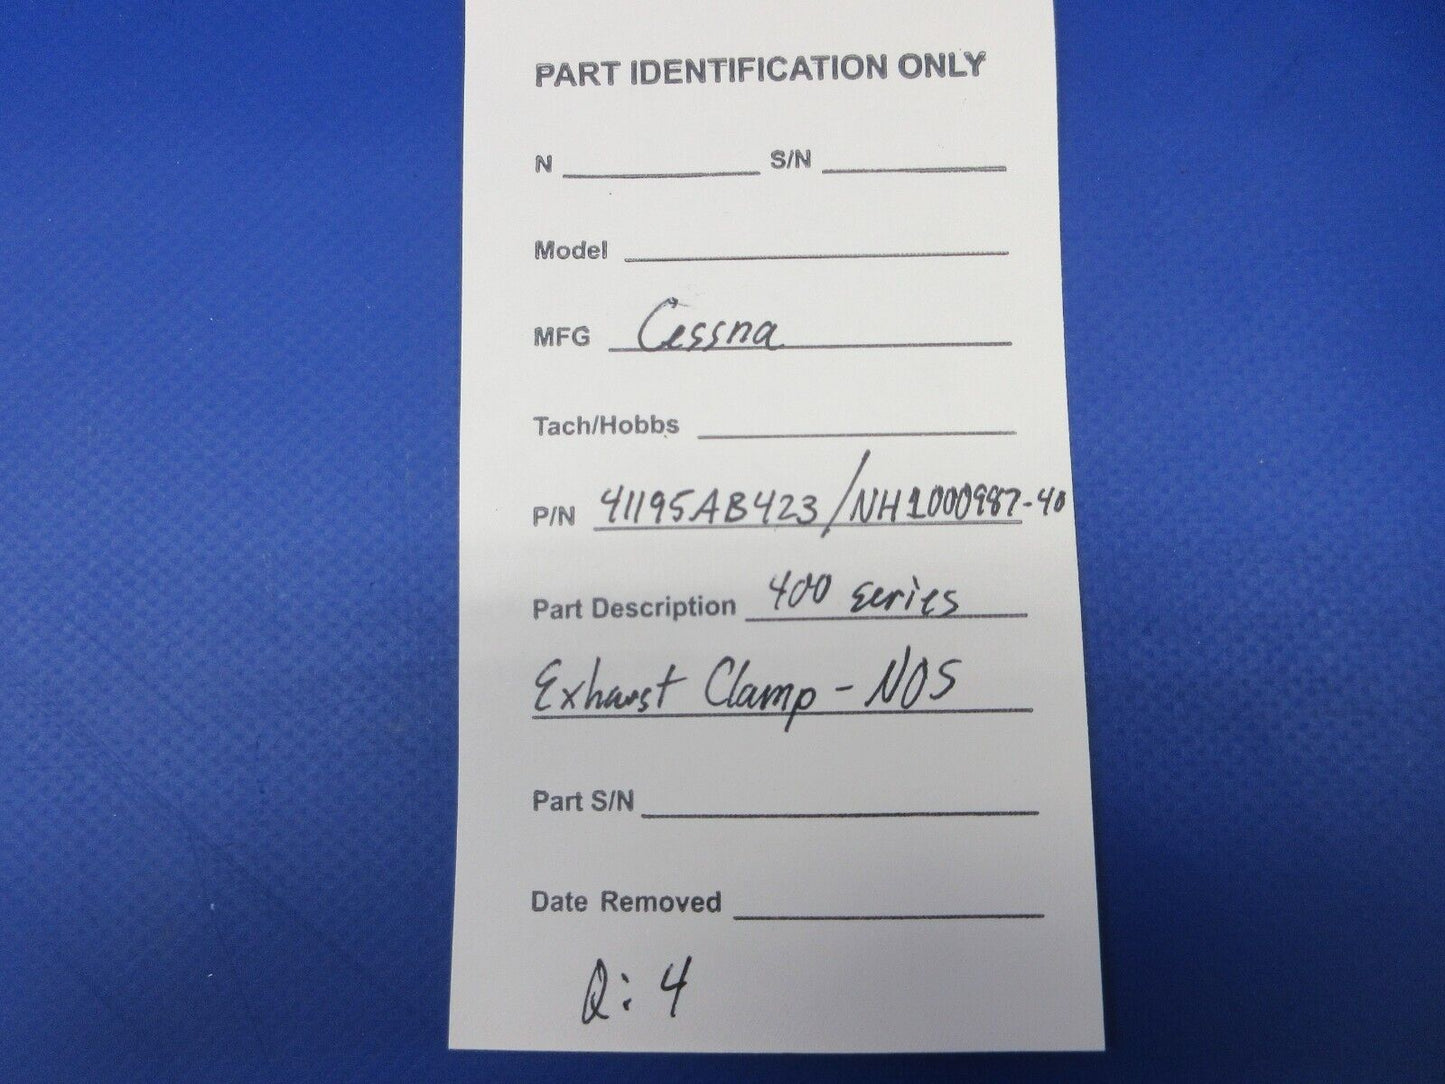 PART IDENTIFICATION ONLY
N S/N
Model
MFG Cessna
Tach/Hobbs
P/N 41195AB423/NH1000987-40
Part Description 400 series
Exhaust Clamp - NOS
Part S/N
Date Removed
Q: 4